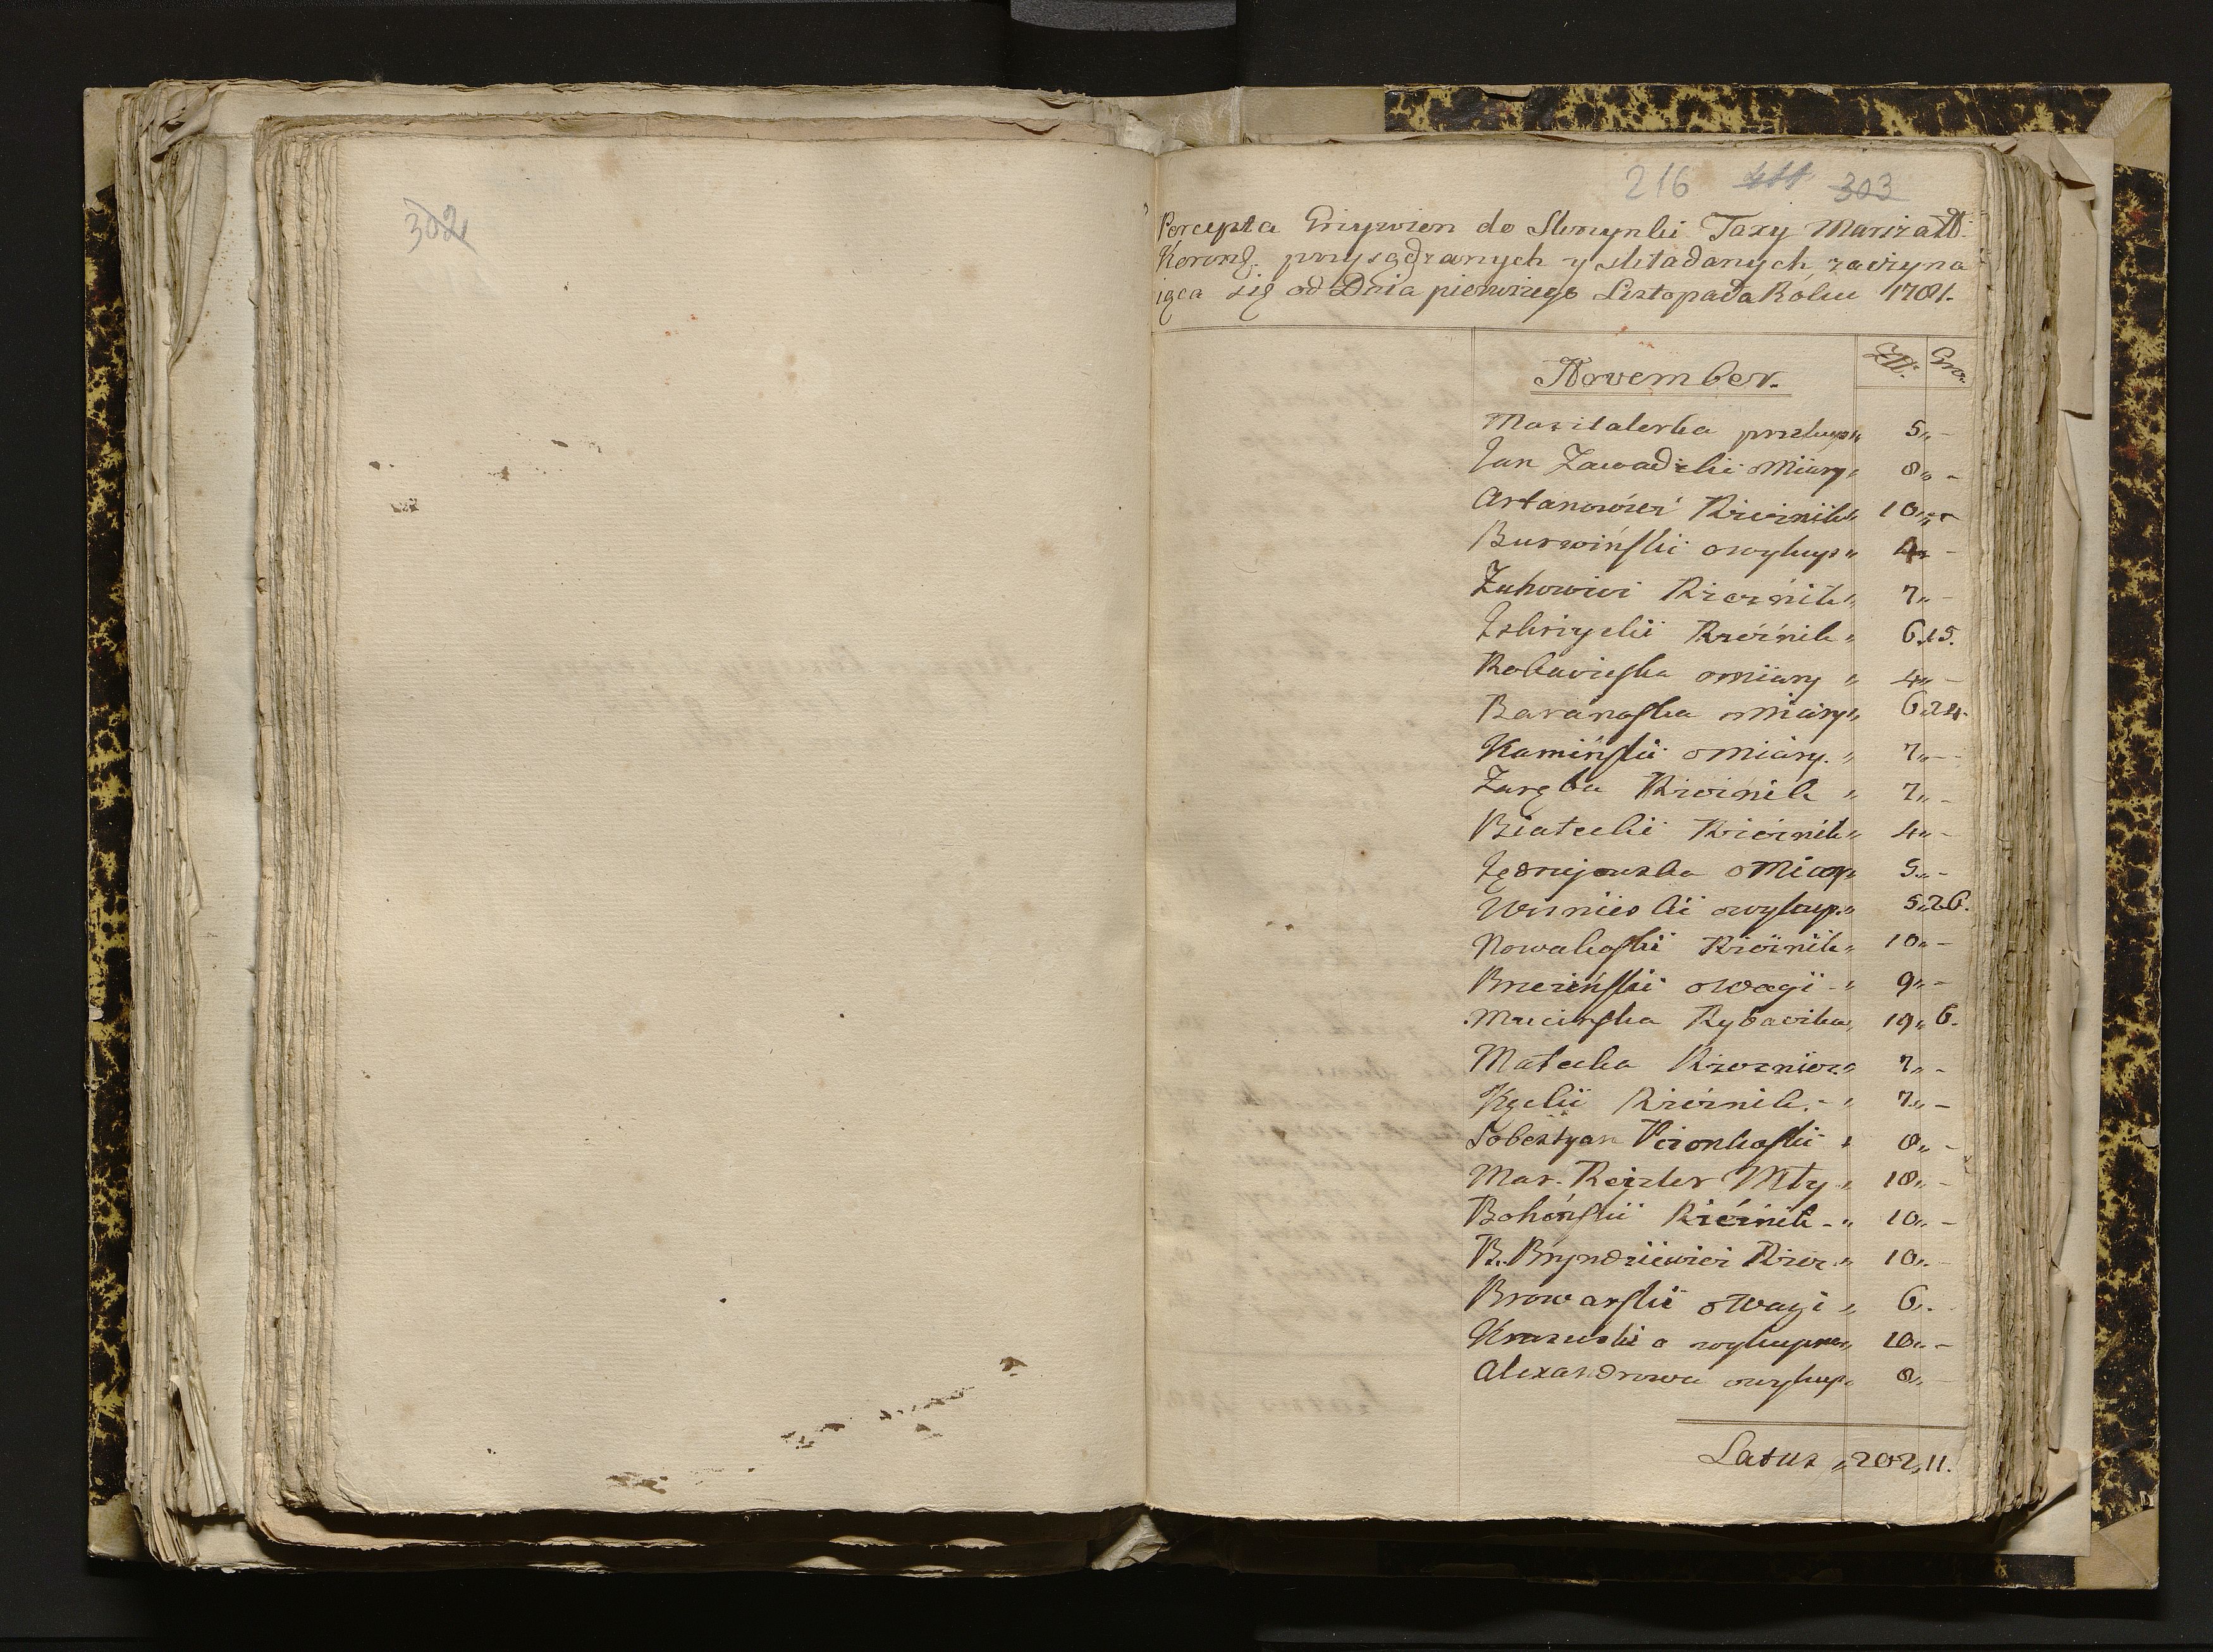 302
216 411 303
Percepta Grzywien do Skrzynki Taxy Marszałł:
Koronẏ: przysądzanych y składanych zaczyna
iąca się od Dnia pierwszego Listopada Roku 1781.
November. Złł: Gro:
Maszталerka przekup„ 5„ -
Jan Zawadzki o Miary„ 8„ -
Artanowicz Rzeźnik„ 10„ -
Burwiński o wykup„ 4„ -
Żukowicz Rzeźnik„ 7„ -
Rzeźnik„ 6„15.
o miary„ 4„ -
Baranoska o Miary„ 6„24.
Kamiński o Miary.„ 7„ -
Zaręba Rzeźnik„ 7„ -
Białecki Rzeźnik„ 4„ -
Jędrzejowska o Miary 5„ -
o wykup.„ 5„26.
Nowakoski Rzeźnik„ 10„ -
Brzeziński o Wagi -„ 9„ -
Mrucinska Rybaczka„ 19„ 6.
Małecka Rzeznicz.„ 7„ -
Kącki Rzeźnik. -„ 7„ -
Sobestyan Pionkoski„ 8„ -
Mar. Reizler Mły„ 18„ -
Bohenski Rzeźnik -„ 10„ -
B. Bryndziewicz Rzez.„ 10„ -
Browarski o Wagi„ 6„ -
Kraszewski o wykupno„ 10„ -
Alexandrowa o wykup„ 8„ -
Latus „202„11.